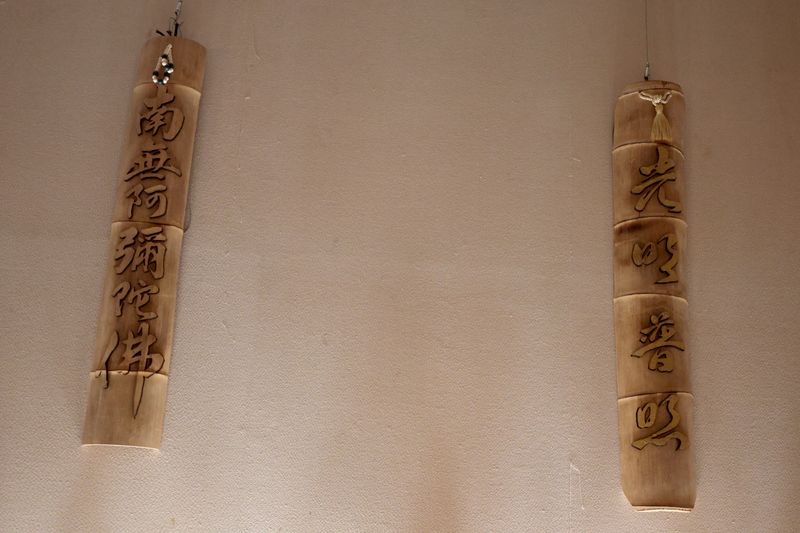 南無阿彌陀佛
光明普照